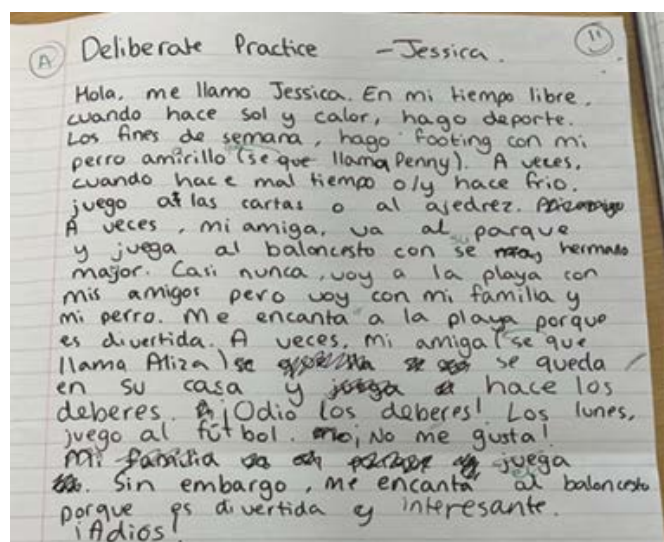 A Deliberate Practice - Jessica. 11
Hola, me llamo Jessica. En mi tiempo libre,
cuando hace sol y calor, hago deporte.
Los fines de semana, hago footing con mi
perro amirillo (se que llama Penny). A veces,
cuando hace mal tiempo o/y hace frio.
juego a las cartas o al ajedrez.
A veces, mi amiga, va al parque
y juega al baloncesto con se su hermano
major. Casi nunca, voy a la playa con
mis amigos pero voy con mi familia y
mi perro. Me encanta a la playa porque
es divertida. A veces, mi amiga (se que
llama Aliza) se queda
en su casa y hace los
deberes. ¡Odio los deberes! Los lunes,
juego al fútbol. ¡No me gusta!
Mi familia juega
. Sin embargo, me encanta al baloncesto
porque es divertida y interesante.
¡Adiós!